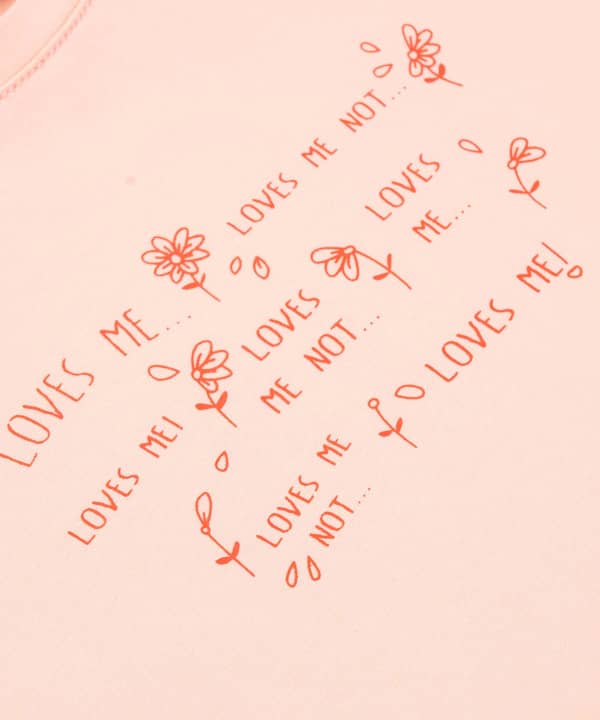 LOVES ME...
LOVES ME NOT...
LOVES ME!
LOVES
ME NOT...
LOVES
ME...
LOVES ME
NOT...
LOVES ME!